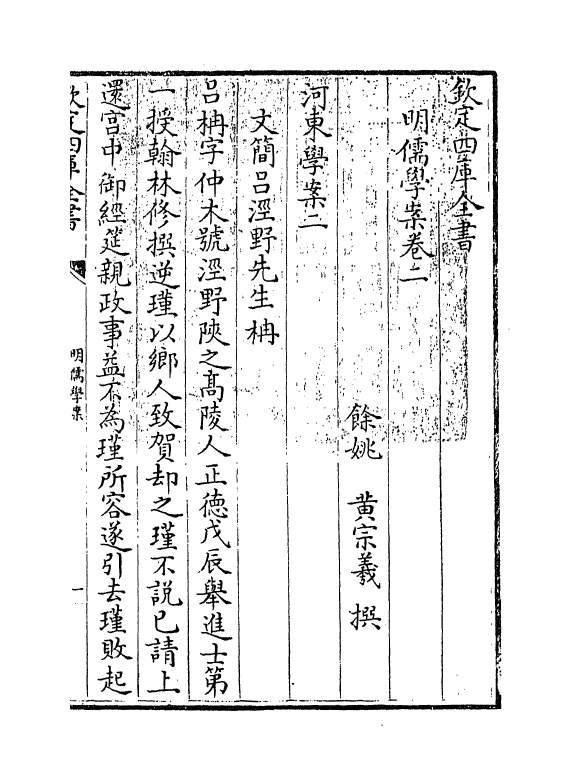 欽定四庫全書
明儒學案卷二
餘姚 黃宗羲 撰
河東學案二
文簡呂涇野先生柟
呂柟字仲木號涇野陜之髙陵人正德戊辰舉進士第
一授翰林修撰逆瑾以鄉人致賀却之瑾不說已請上
還宫中御經筵親政事益不為瑾所容遂引去瑾敗起
欽定四庫全書
明儒學案
一